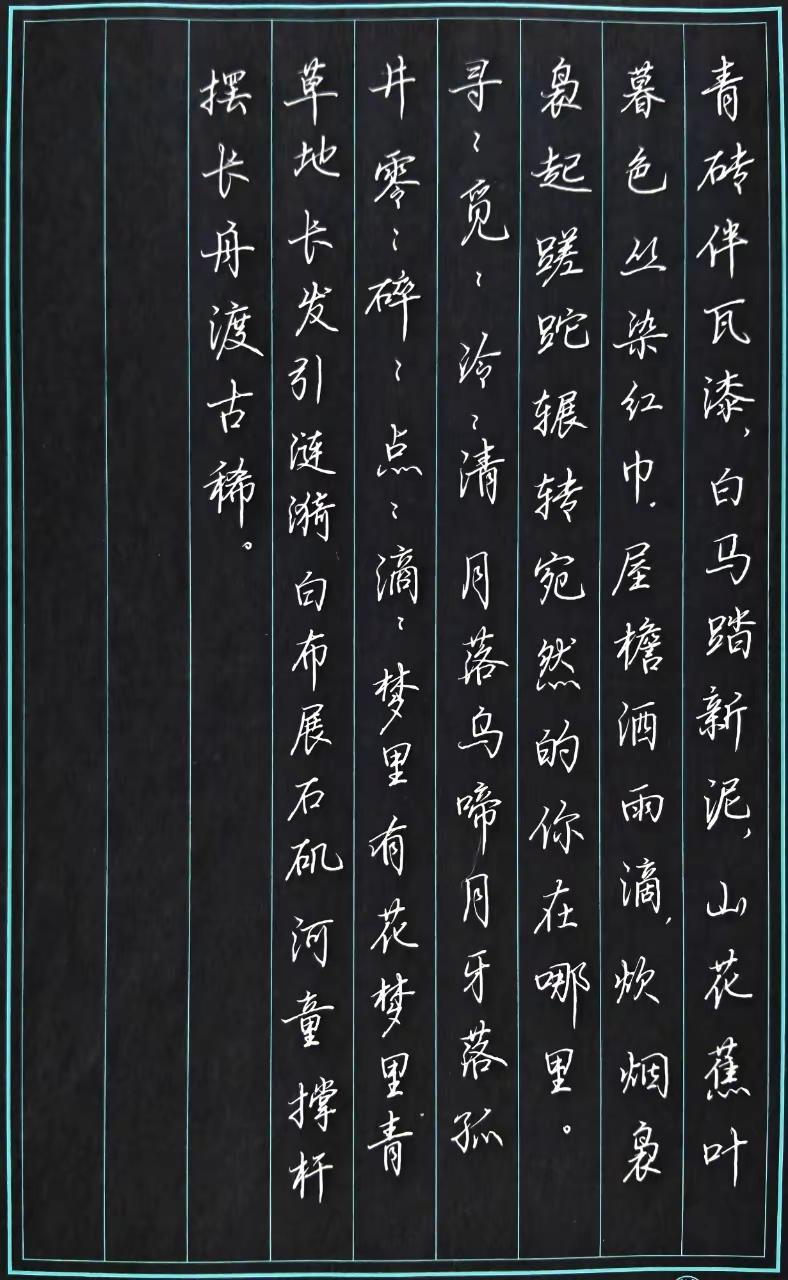 青砖伴瓦漆,白马踏新泥,山花蕉叶
暮色丛染红巾.屋檐洒雨滴,炊烟袅
袅起蹉跎辗转宛然的你在哪里。
寻:觅:冷:清 月落乌啼月牙落孤
井零:碎:点:滴:梦里有花梦里青
草地长发引涟漪白布展石矶河童撑杆
摆长舟渡古稀。